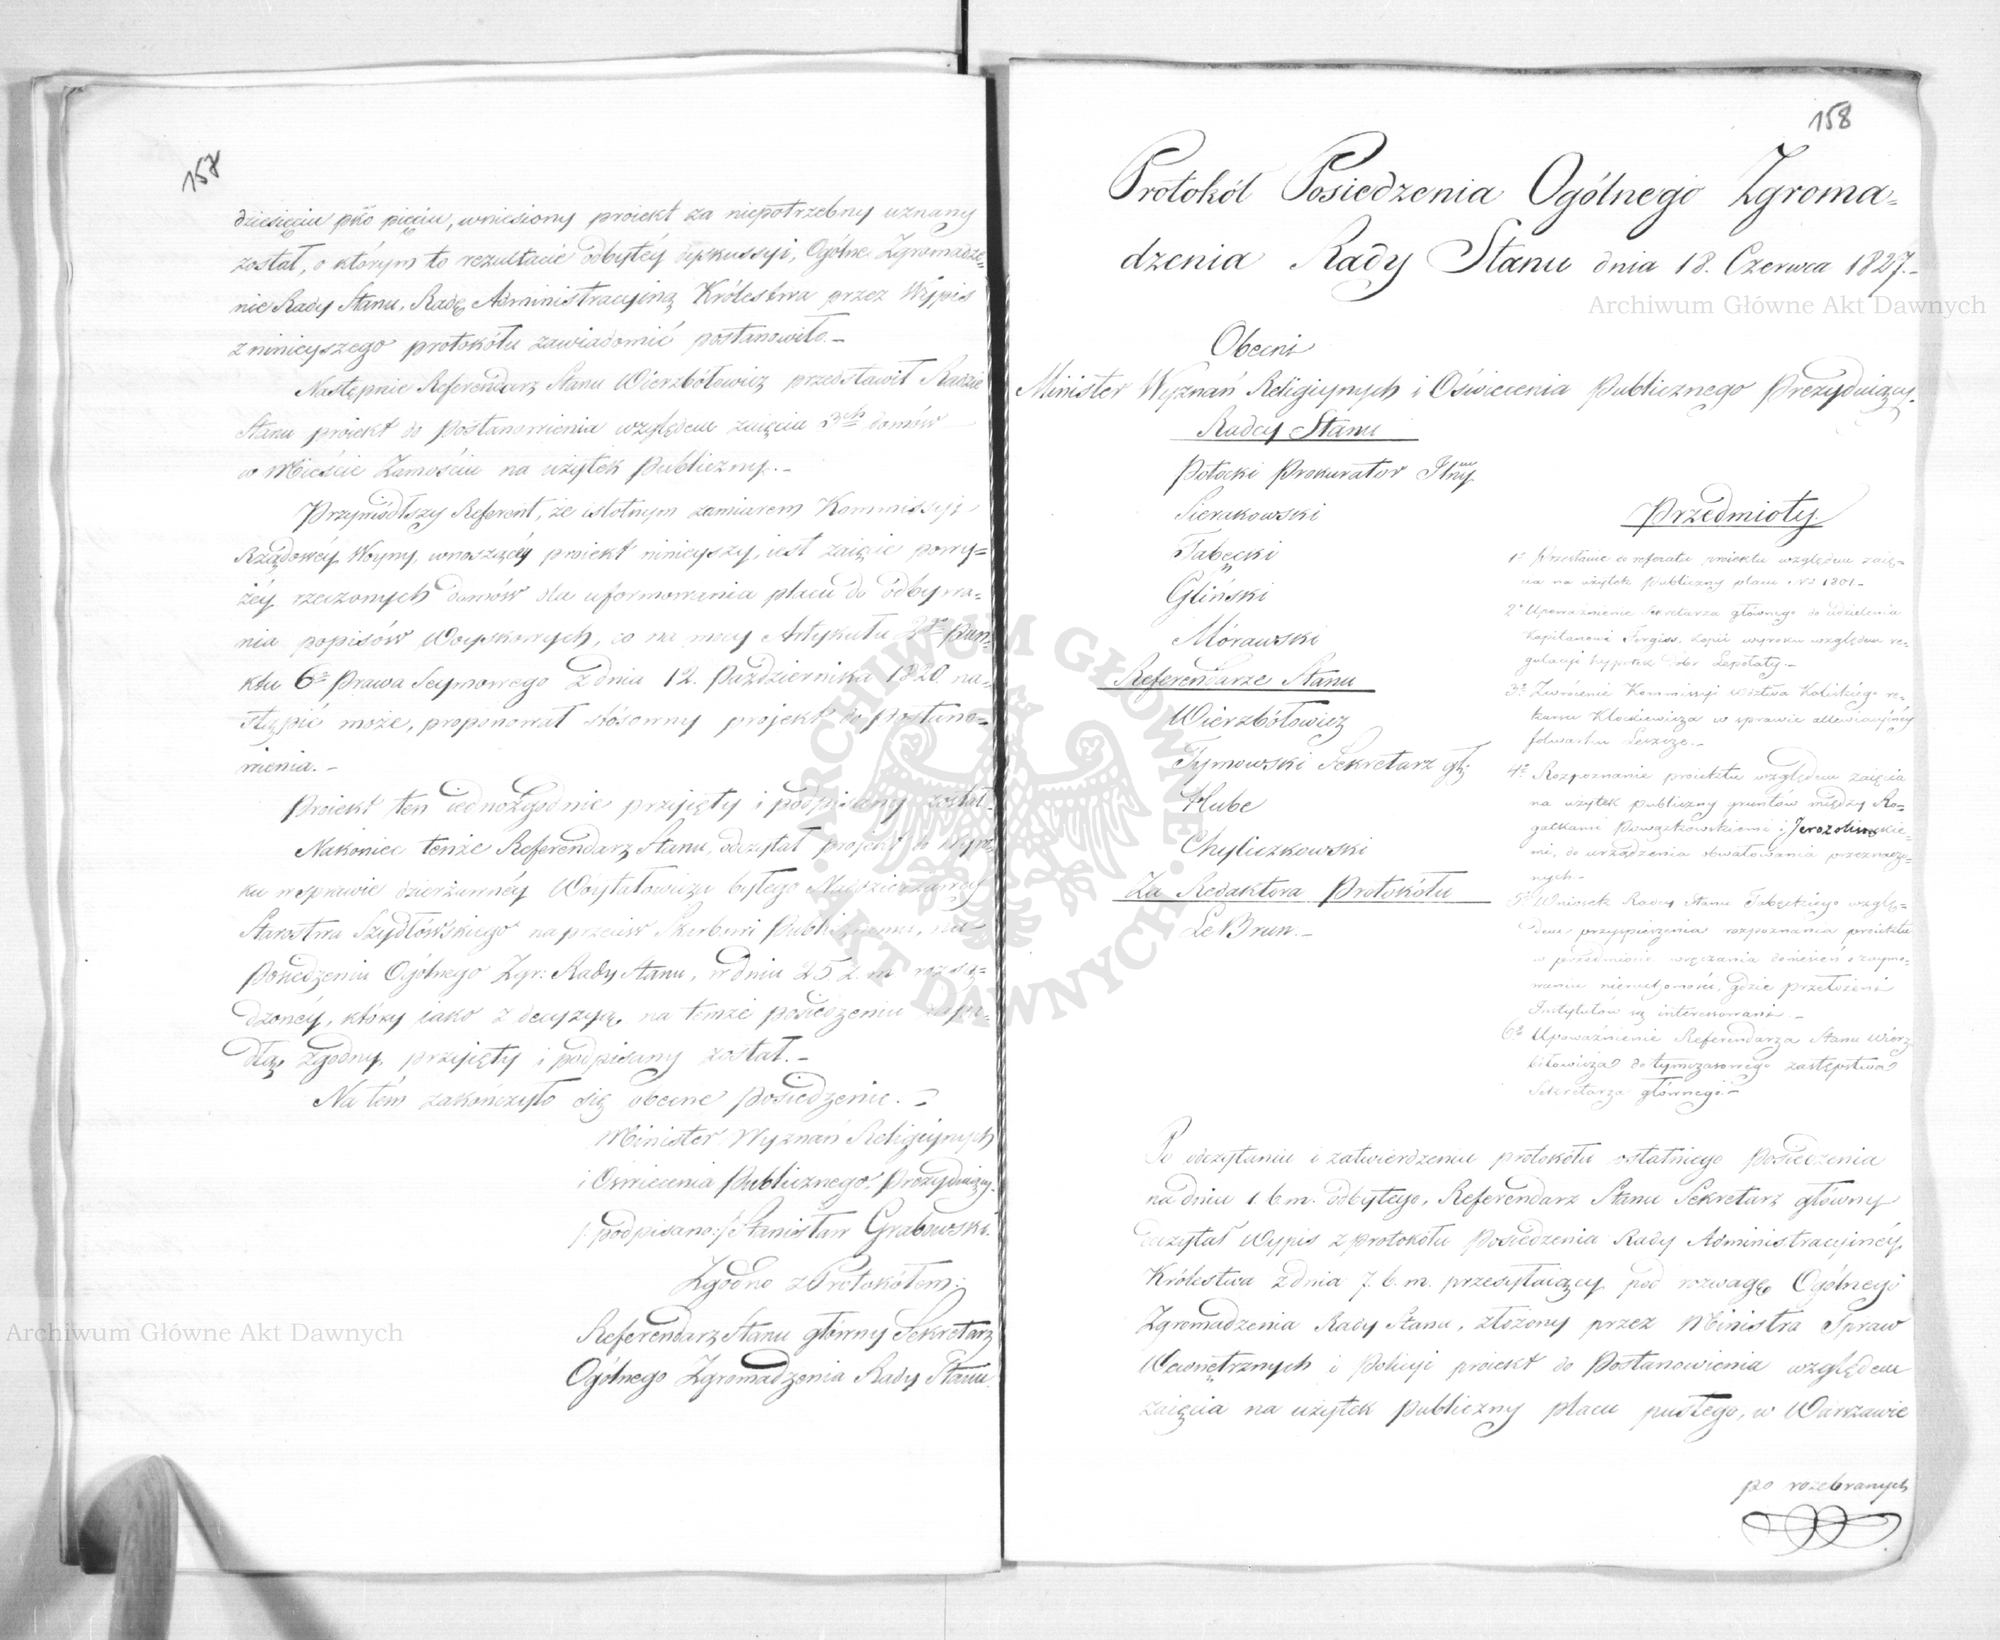 157
dziesięciu pko pięciu, wniesiony proiekt za niepotrzebny uznany
został, o którym to rezultacie odbytéy dyskussyi, Ogólne Zgromadze-
nie Rady Stanu, Radę Administracyiną Królestwa przez Wypis
z ninieyszego protokółu zawiadomić postanowiło. -
Następnie Referendarz Stanu Wierzbołowicz przedstawił Radzie
Stanu proiekt do postanowienia względem zaięcia 3ch domów
w Mieście Zamościu na użytek publiczny. -
Przywiódłszy Referent, że istotnym zamiarem Kommissyi
Rządowéy Woyny, wnoszącéy proiekt ninieyszy, iest zaięcie powy-
żéy rzeczonych domów dla uformowania placu do odbywa-
nia popisów Woyskowych, co na mocy Artykułu 2go pun-
ktu 6o Prawa Seymowego z dnia 12. Października 1820 na-
stąpić może, proponował stósowny projekt do postano-
wienia. -
Proiekt ten iednozgodnie przyięty i podpisany został.
Nakoniec tenże Referendarz Stanu, odczytał projekt do Wyro-
ku w sprawie dzierżawnéy byłego Naddzierżawcy
Starostwa Szydłowskiego naprzeciw Skarbowi Publicznemu, na
Posiedzeniu Ogólnego Zgr: Rady Stanu, w dniu 25 z. m. rozsą-
dzonéy, który iako z decyzyą na temże posiedzeniu zapa-
dłą zgodny, przyięty i podpisany został. -
Na tém zakończyło się obecne posiedzenie. -
Minister Wyznań Religiynych
i Oświecenia Publicznego Prezyduiący.
/:podpisano:/ Stanisław Grabowski.
Zgodno z Protokółem:
Referendarz Stanu główny Sekretarz
Ogólnego Zgromadzenia Rady Stanu.
158
Protokół Posiedzenia Ogólnego Zgroma-
dzenia Rady Stanu dnia 18. Czerwca 1827. -
Obecni
Minister Wyznań Religiynych i Oświecenia Publicznego Prezyduiący.
Radcy Stanu
Potocki Prokurator
Sierakowski
Tabęcki
Gliński
Morawski
Referendarze Stanu
Wierzbołowicz
Tymowski Sekretarz gł:
Hube
Chyliczkowski
Za Redaktora Protokółu
Le Brun. -
Przedmioty
1o Przesłanie do referatu proiektu względem zaię-
cia na użytek publiczny placu No 1801. -
2o Upoważnienie Sekretarza głównego do udzielenia
Kapitanowi kopii wyroku względem re-
gulacyi hyppotek Dóbr -
3o Zwrócenie Kommissyi Wdztwa Kaliskiego re-
kursu Kłockiewicza w sprawie
folwarku -
4o Rozpoznanie proiektu względem zaięcia
na użytek publiczny gruntów między Ro-
gatkami Powązkowskiemi i Jerozolimskie-
mi, do urządzenia obwałowania przeznaczo-
nych. -
5o Wniosek Radcy Stanu Tabęckiego wzglę-
dem przyspieszenia rozpoznania proiektu
w przedmiocie wręczania doniesień o zaymo-
waniu nieruchomości, gdzie przełożeni
Instytutów są interessowani. -
6o Upoważnienie Referendarza Stanu Wierz-
bołowicza do tymczasowego zastępstwa
Sekretarza głównego. -
Po odczytaniu i zatwierdzeniu protokółu ostatniego posiedzenia
na dniu 1. b. m. odbytego, Referendarz Stanu Sekretarz główny
odczytał Wypis z protokółu Posiedzenia Rady Administracyinéy
Królestwa z dnia 7. b. m. przesyłaiący pod rozwagę Ogólnego
Zgromadzenia Rady Stanu, złożony przez Ministra Spraw
Wewnętrznych i Policyi proiekt do Postanowienia względem
zaięcia na użytek publiczny placu pustego, w Warszawie
po rozebranych
Archiwum Główne Akt Dawnych
Archiwum Główne Akt Dawnych
ARCHIWUM GŁÓWNE AKT DAWNYCH